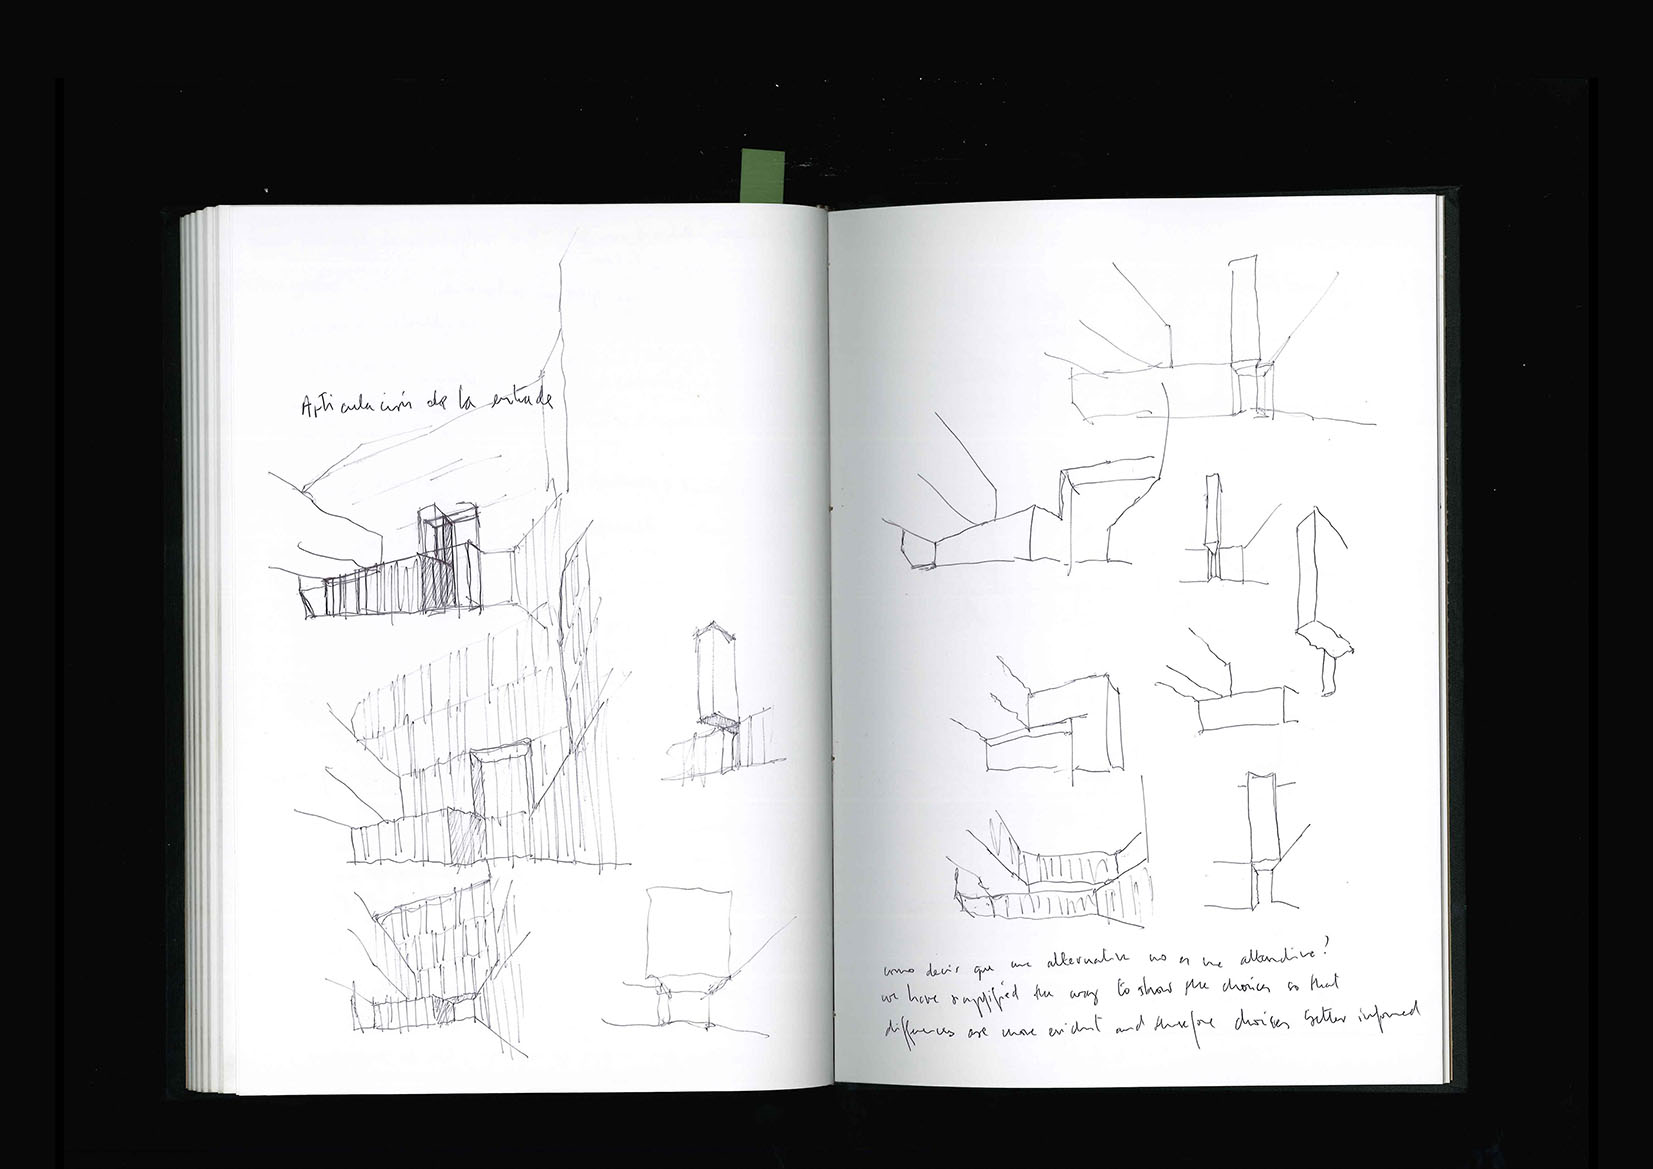 Articulación de la entrada
como decir que una alternativa no es una alternativa?
we have simplified the way to show the choices so that
differences are more evident and therefore choices better informed